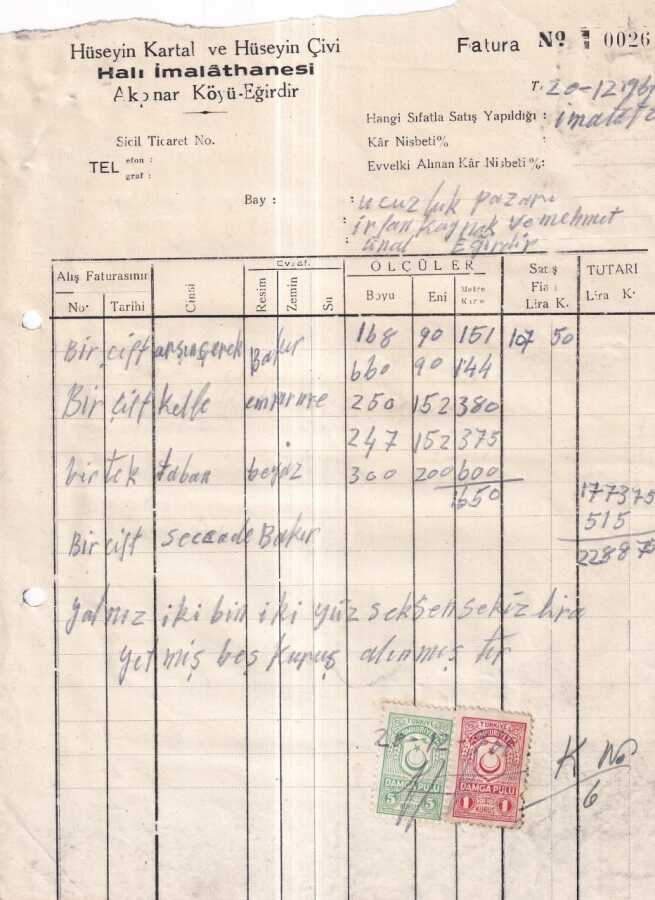 Hüseyin Kartal ve Hüseyin Çivi
Halı İmalâthanesi
Akpınar Köyü-Eğirdir
Fatura No. 0026
T. 20-12-196
Hangi Sıfatla Satış Yapıldığı :
Kâr Nisbeti%
Evvelki Alınan Kâr Nisbeti %:
Sicil Ticaret No.
TEL efon :
graf :
Bay : ucuzluk pazarı
irfan Kaynak ve mehmut
ünal Eğirdir
Alış Faturasının
No. Tarihi
Cinsi
Evsaf.
Resim Zemin Su
ÖLÇÜLER
Boyu Eni Metre Kare
Satış Fia Lira K.
TUTARI
Lira K.
Bir çift Bakır 168 90 151 107 50
660 90 144
Bir çift Kelle 250 152 380
247 152 375
bir tek taban beyaz 300 200 600
1650
177375
515
Bir çift seccade Bakır
228875
Yalnız iki bin iki yüz seksen sekiz lira
yetmiş beş Kuruş alınmış tır
TÜRKİYE
CUMHURİYETİ
DAMGA PULU
5 5
TÜRKİYE
CUMHURİYETİ
DAMGA PULU
1 1
KURUŞ
20-12-
K No
6